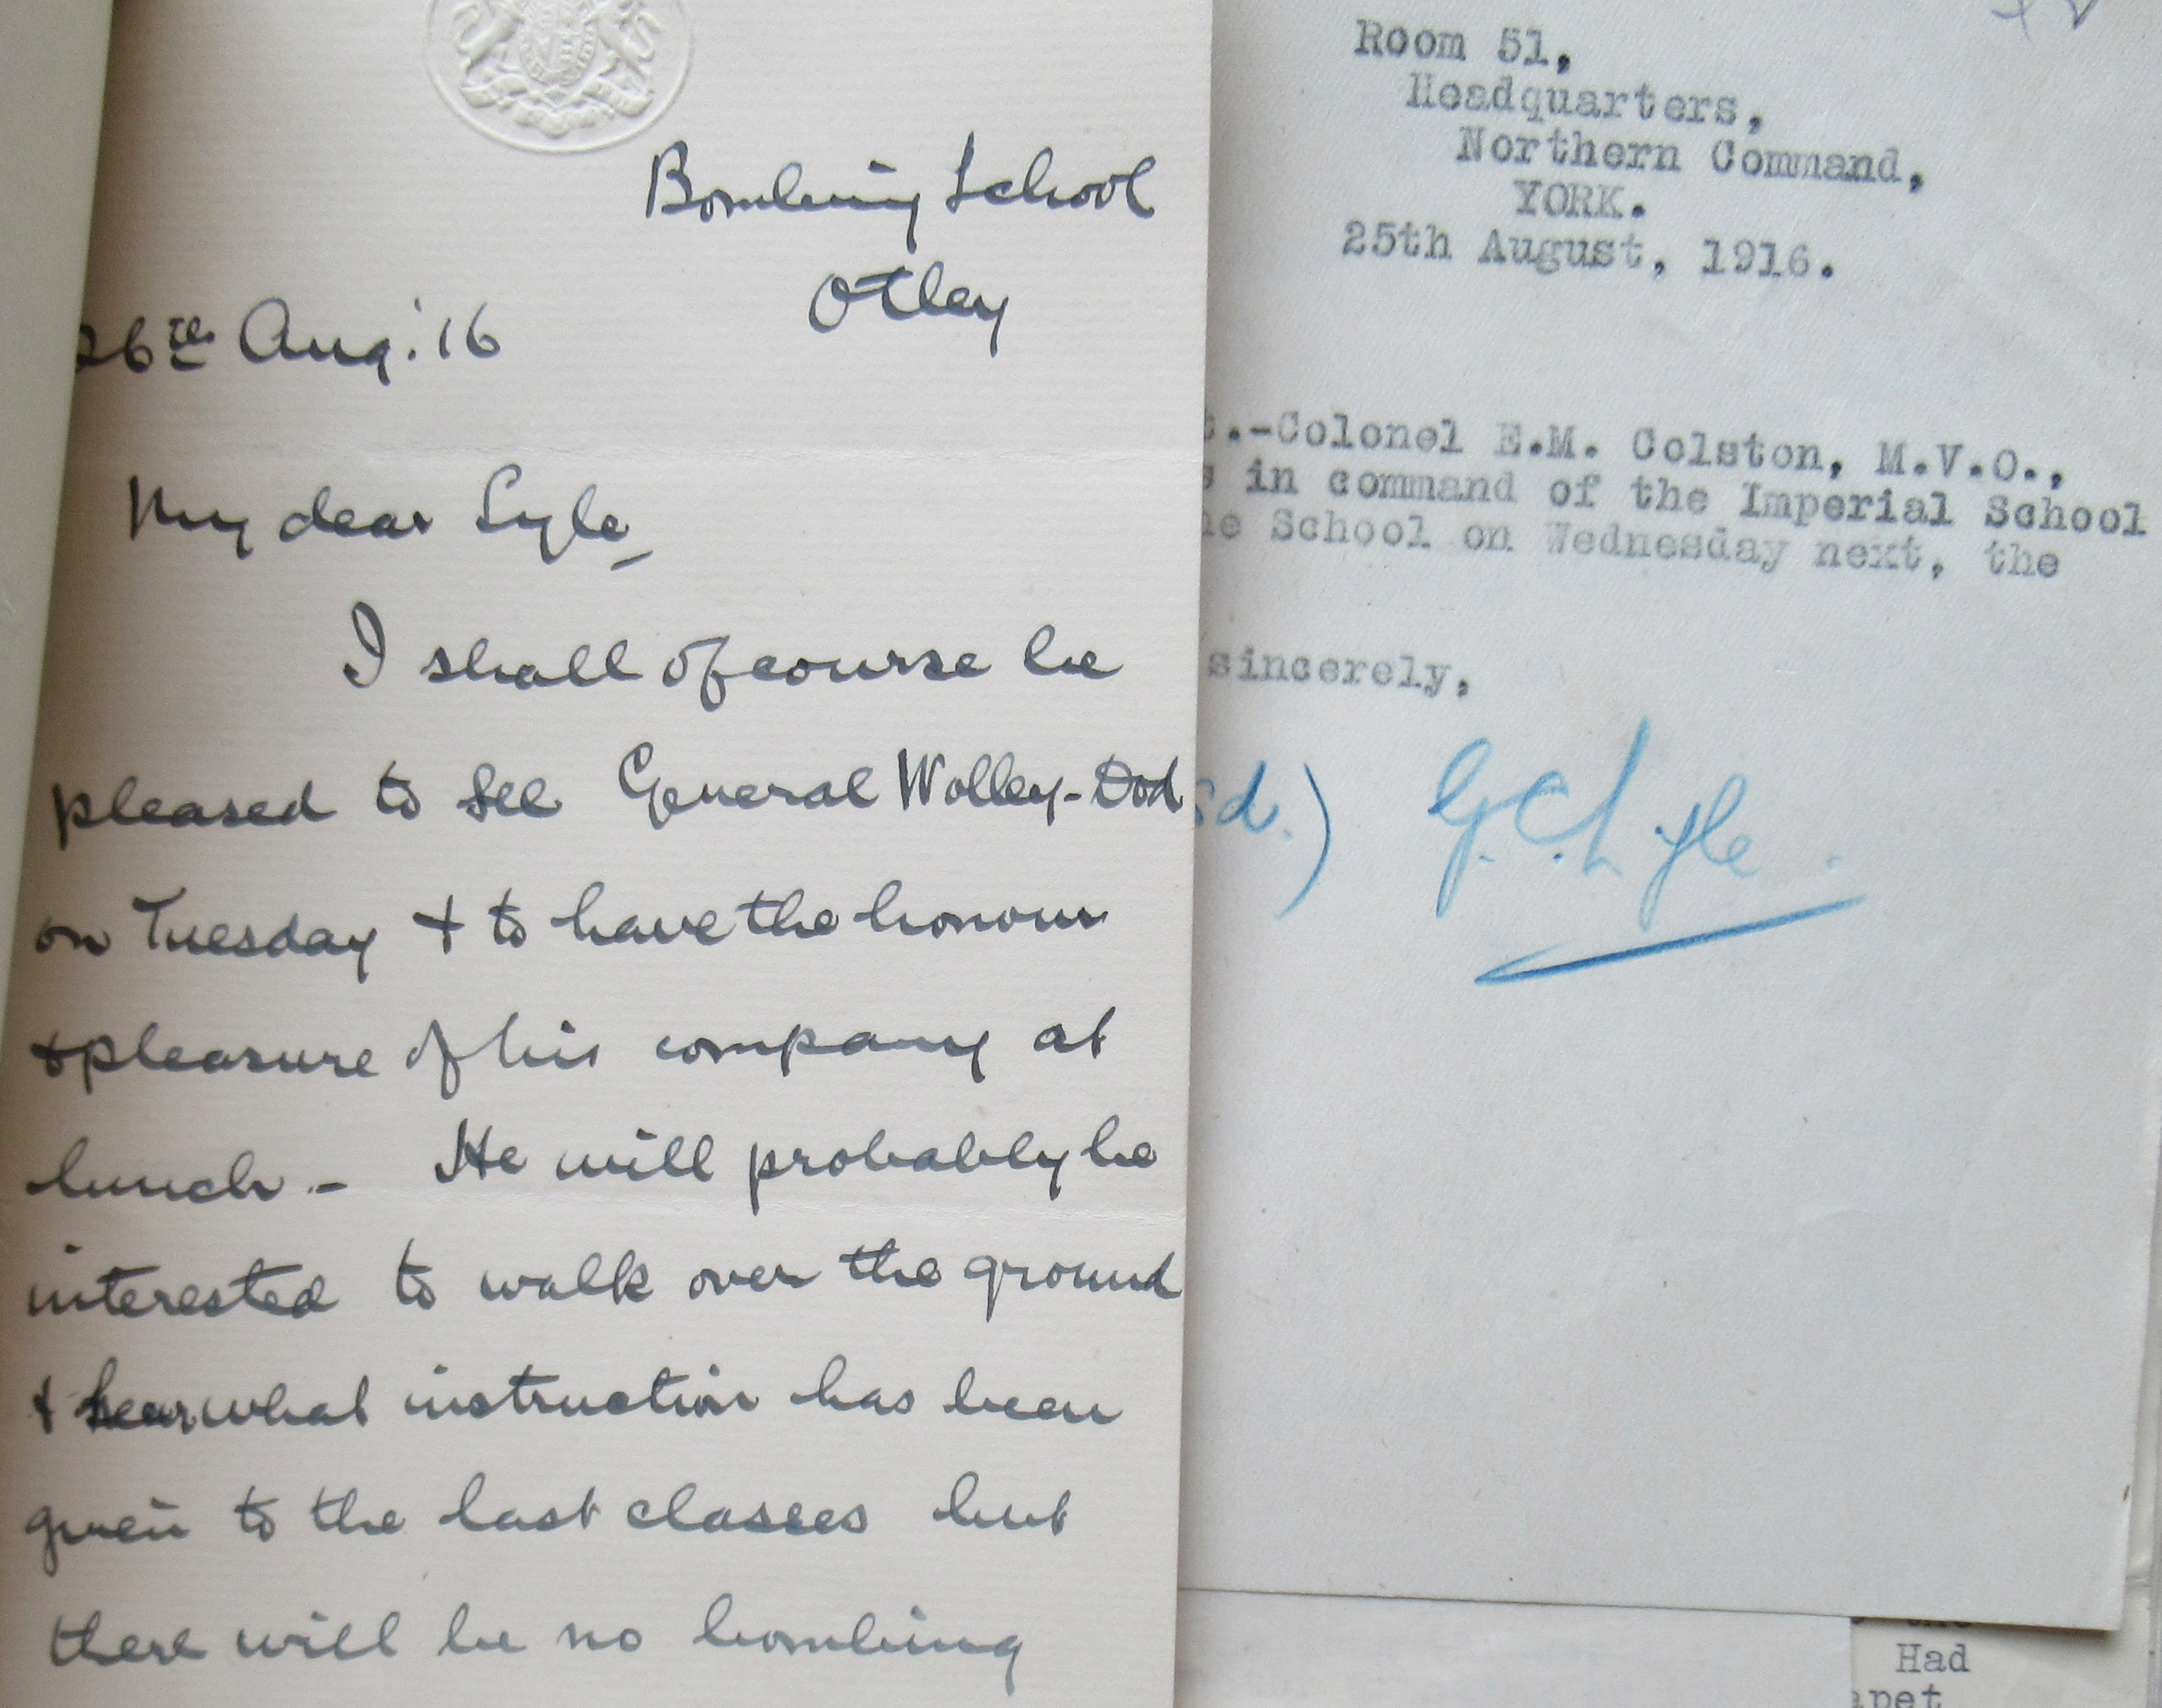 Bombing School
Otley
26th Aug: '16
My dear Lyle,
I shall of course be
pleased to see General Wolley-Dod
on Tuesday & to have the honour
& pleasure of his company at
lunch. - He will probably be
interested to walk over the ground
& hear what instruction has been
given to the last classes but
there will be no bombing
Room 51,
Headquarters,
Northern Command,
YORK.
25th August, 1916.
.-Colonel E.M. Colston, M.V.O.,
in command of the Imperial School
School on Wednesday next, the
sincerely,
d.) G.C. Lyle.
Had